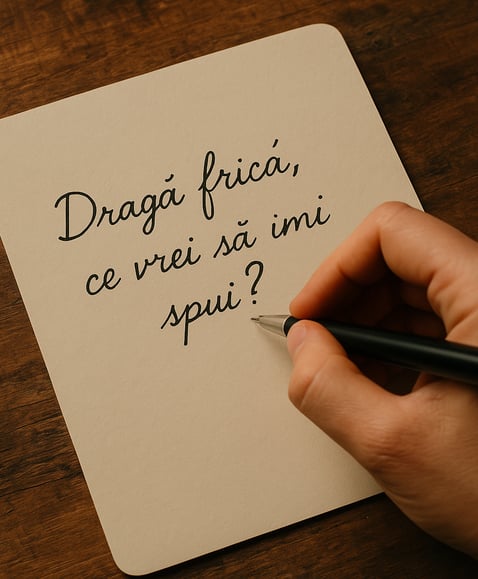 Dragă frică,
ce vrei să imi
spui?